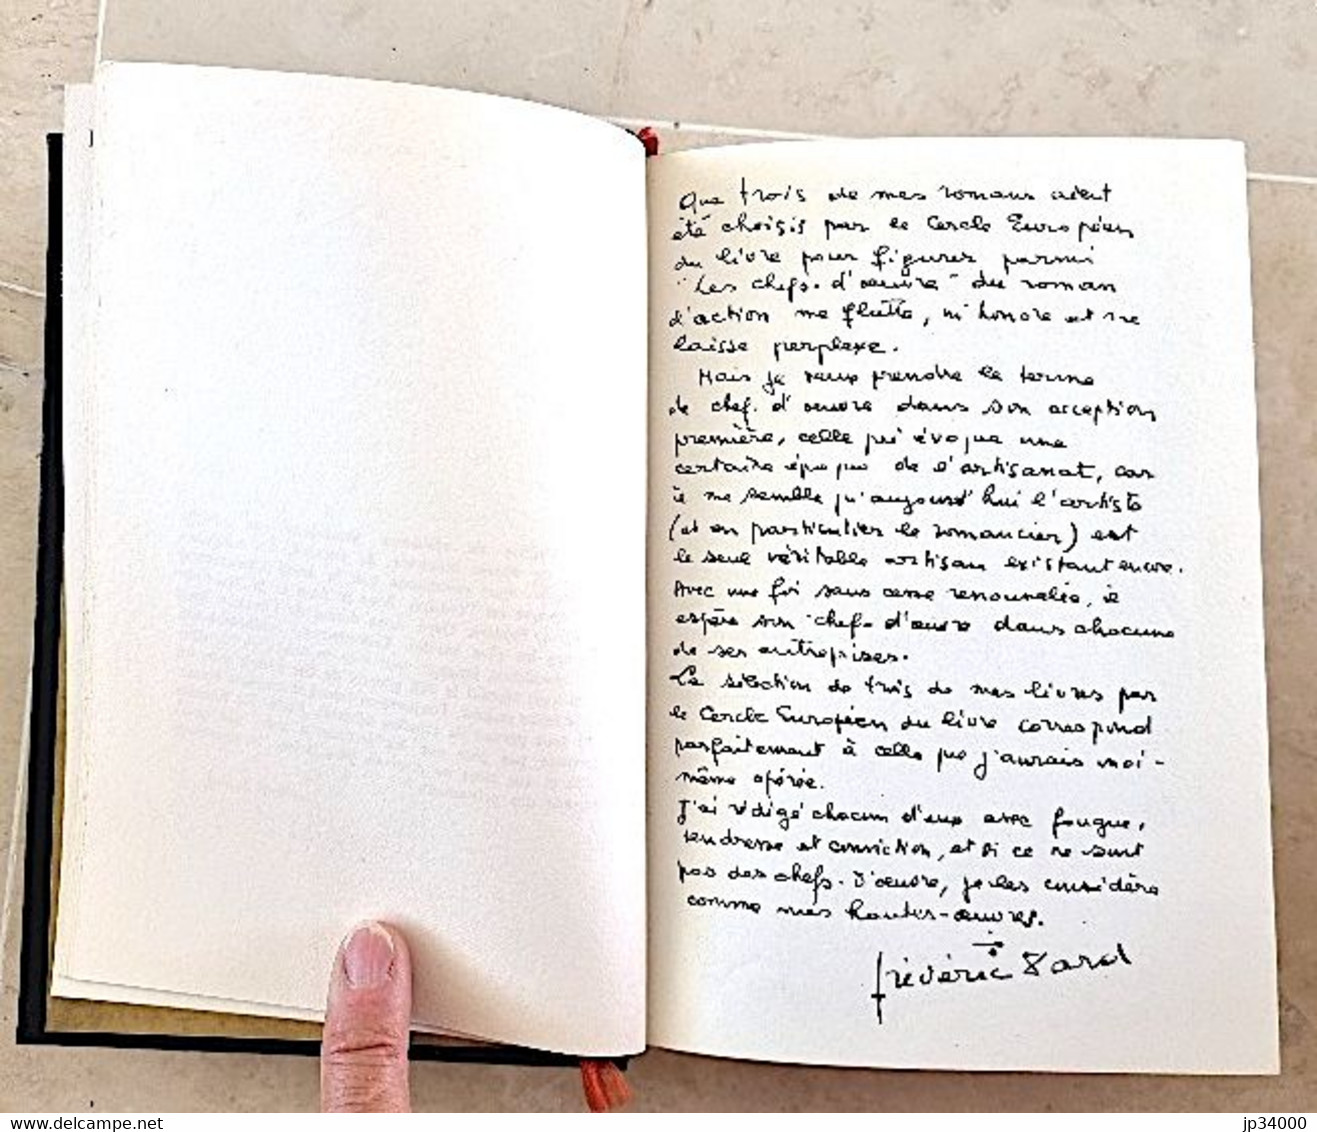 Que trois de mes romans aient
été choisis par le Cercle Européen
du livre pour figurer parmi
"Les chefs-d'œuvre" du roman
d'action me flatte, m'honore et me
laisse perplexe.
Mais je veux prendre le terme
de chef-d'œuvre dans son acception
première, celle qui évoque une
certaine époque de l'artisanat, car
il me semble qu'aujourd'hui l'artiste
(et en particulier le romancier) est
le seul véritable artisan existant encore.
Avec une foi sans cesse renouvelée, il
espère son chef-d'œuvre dans chacune
de ses entreprises.
La sélection de trois de mes livres par
le Cercle Européen du livre correspond
parfaitement à celle que j'aurais moi-
même opérée.
J'ai rédigé chacun d'eux avec fougue,
tendresse et conviction, et si ce ne sont
pas des chefs-d'œuvre, je les considère
comme mes hautes-œuvres.
Frédéric Dard
www.delcampe.net
jp34000